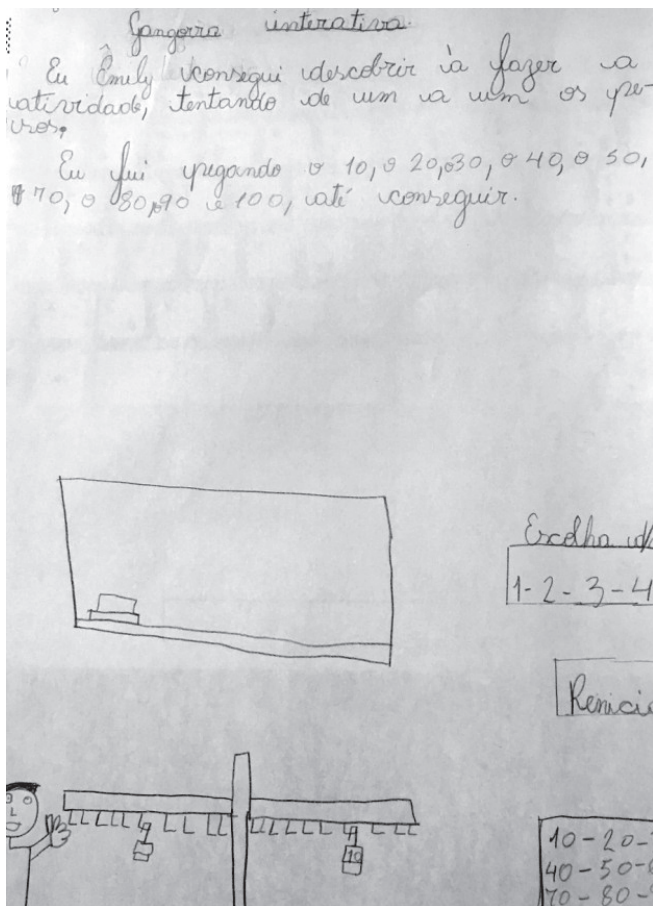 Gangorra interativa.
Eu Êmily consegui descobrir à fazer a
atividade, tentando de um a um os pe-
sos.
Eu fui pegando o 10, o 20, o 30, o 40, o 50,
70, o 80, o 90 e 100, até conseguir.
Escolha
1-2-3-4
10
10-20-
40-50-
70-80-